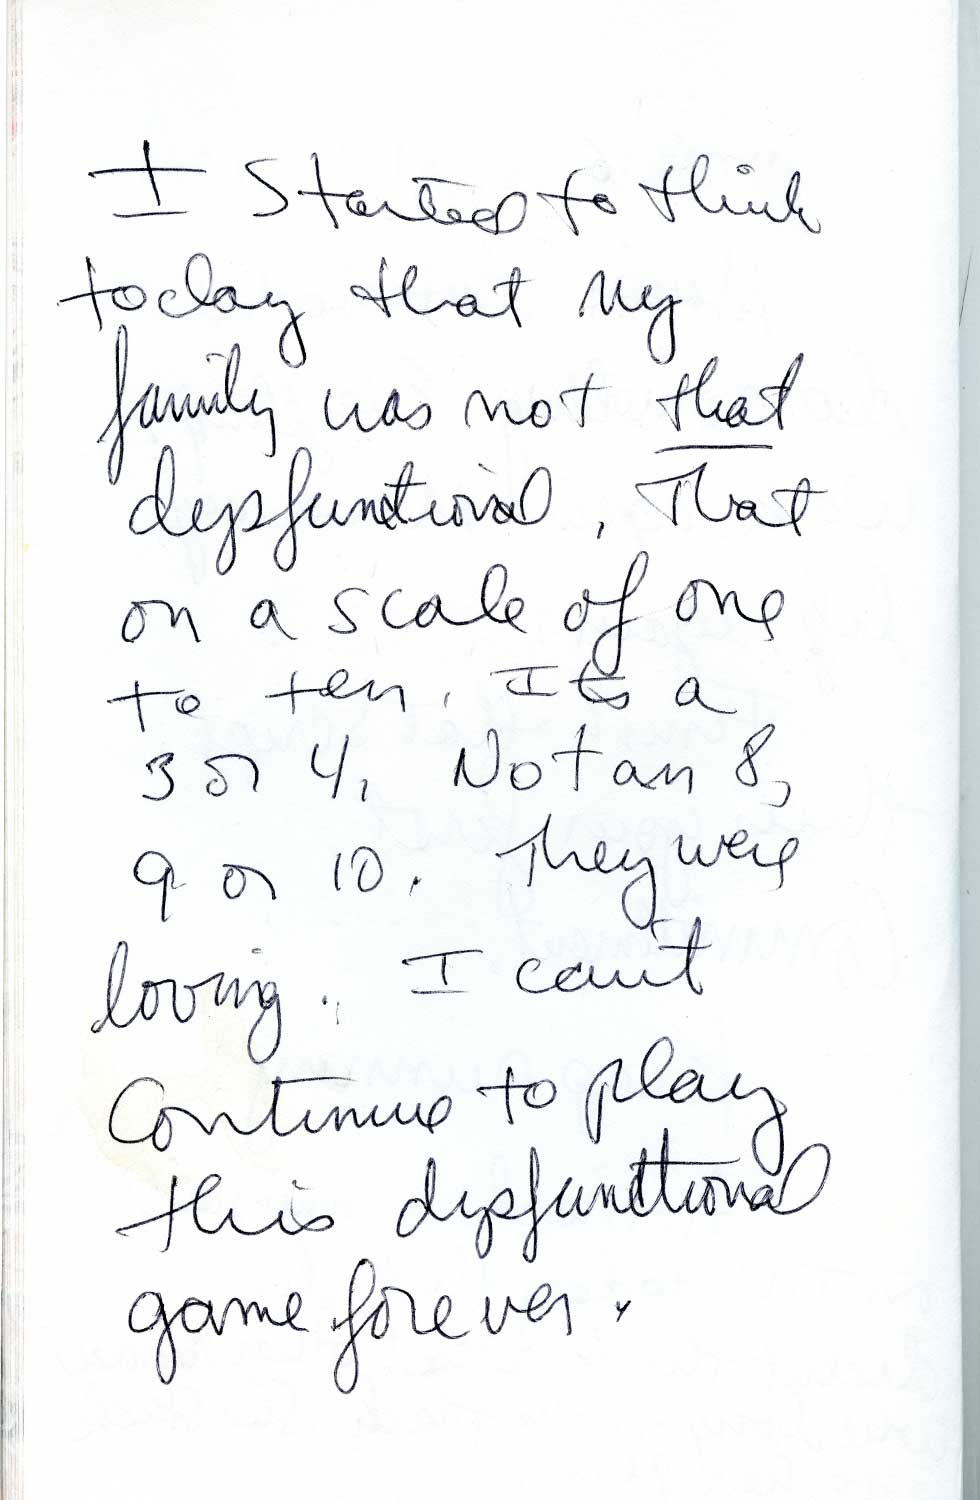 I Started to think
today that my
family was not that
dysfunctional, That
on a scale of one
to ten, Its a
3 or 4, Not an 8,
9 or 10. They were
loving. I can't
Continue to play
this dysfunctional
game forever.